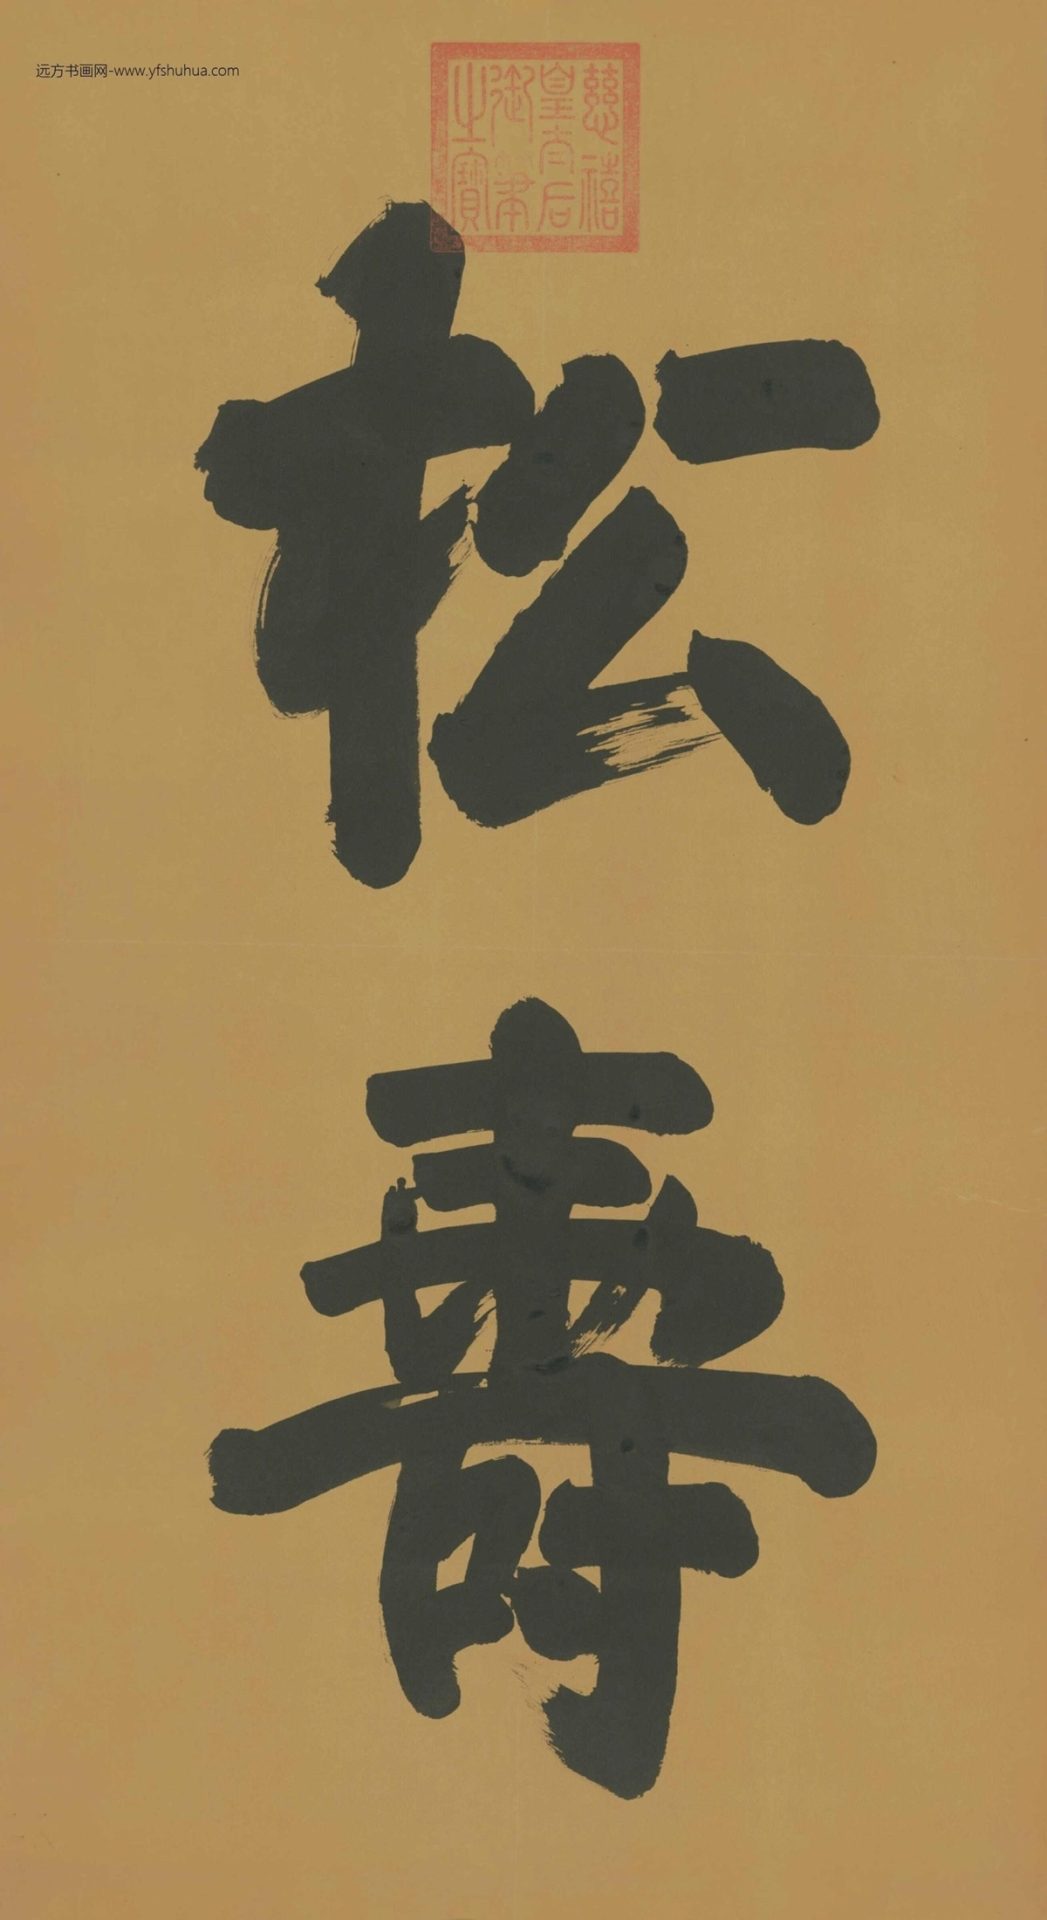 远方书画网-www.yfshuhua.com
慈禧
皇太后
御筆
之寶
松
壽